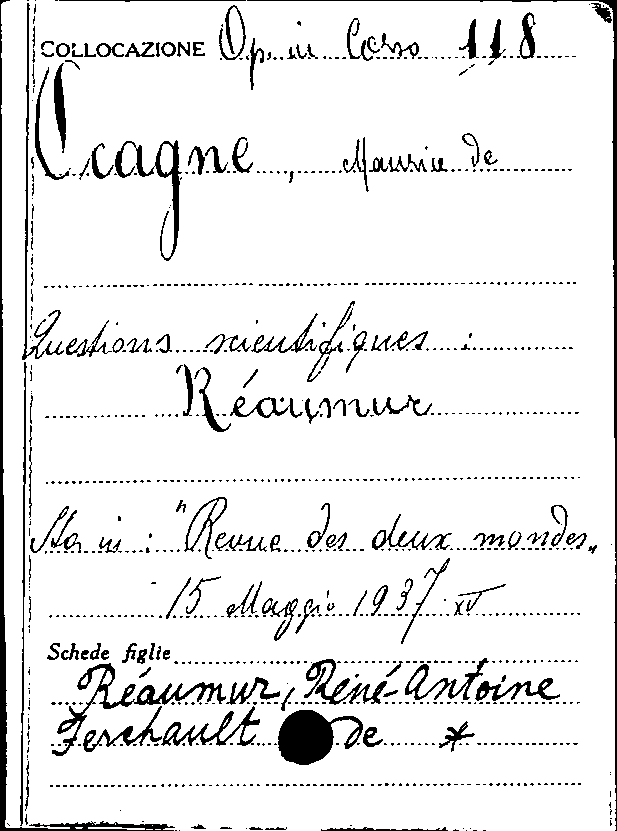 COLLOCAZIONE Op. in Corso 118
Ocagne, Maurice de
Questions scientifiques :
Réaumur
Sta in : "Revue des deux mondes„
15 Maggio 1937. XV
Schede figlie
Réaumur, René-Antoine
Ferchault de *